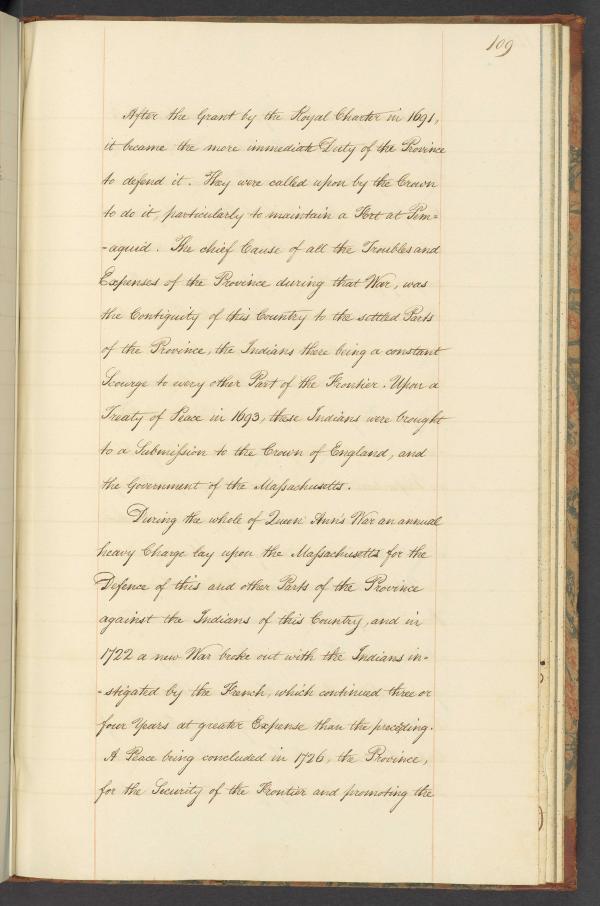 109
After the Grant by the Royal Charter in 1691,
it became the more immediate Duty of the Province
to defend it. They were called upon by the Crown
to do it, particularly to maintain a Fort at Pem=
-aquid. The chief Cause of all the Troubles and
Expenses of the Province during that War, was
the Contiguity of this Country to the settled Parts
of the Province, the Indians there being a constant
Scourge to every other Part of the Frontier. Upon a
Treaty of Peace in 1693, these Indians were brought
to a Submiſsion to the Crown of England, and
the Government of the Maſsachusetts.
During the whole of Queen Ann's War an annual
heavy Charge lay upon the Maſsachusetts for the
Defence of this and other Parts of the Province
against the Indians of this Country, and in
1722 a new War broke out with the Indians in-
-stigated by the French, which continued three or
four Years at greater Expense than the preceding.
A Peace being concluded in 1726, the Province,
for the Security of the Frontier and promoting the